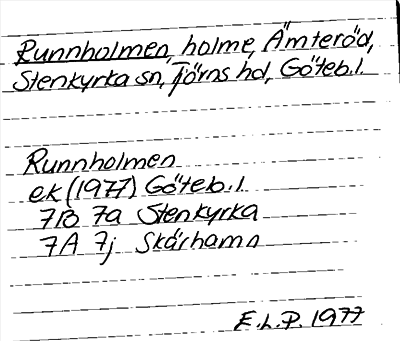 Runnholmen, holme, Ämteröd,
Stenkyrka sn, Tjörns hd, Göteb.l.
Runnholmen
ek (1977) Göteb.l.
7B 7a Stenkyrka
7A 7j Skärhamn
E.L.P. 1977